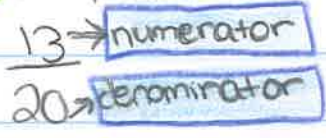 13 → numerator
20 → denominator